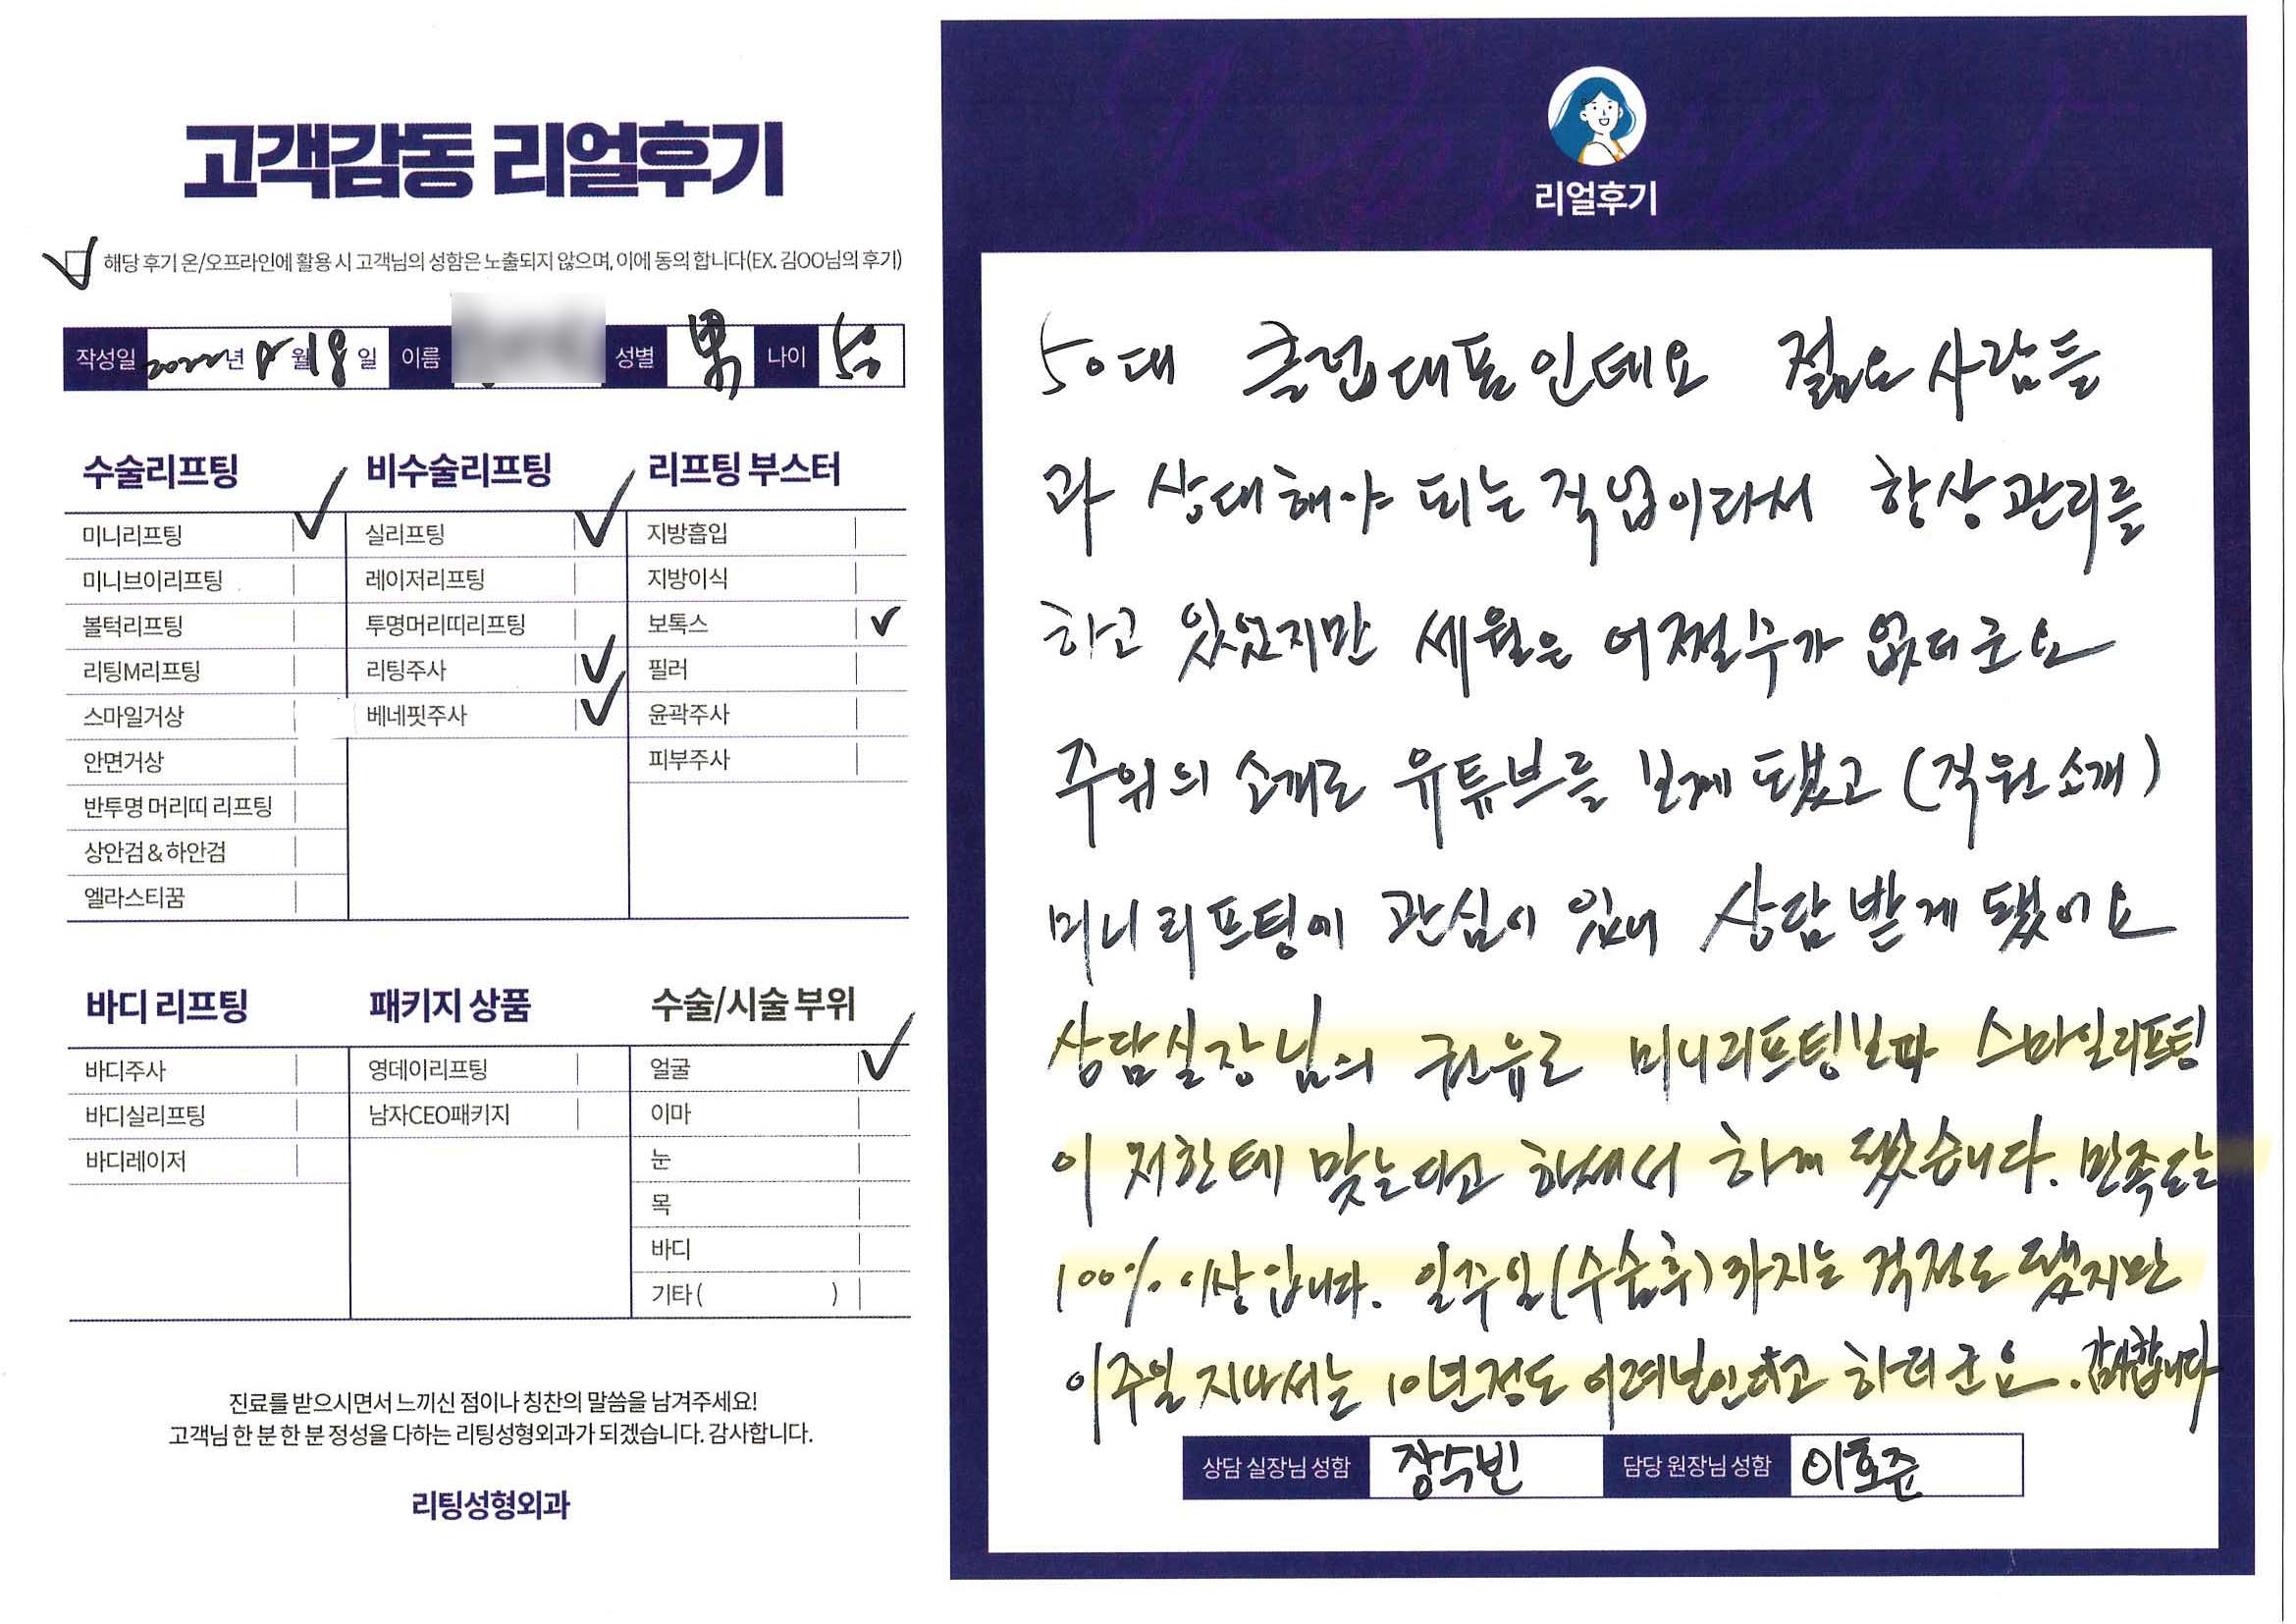 고객감동 리얼후기
해당 후기 온/오프라인에 활용 시 고객님의 성함은 노출되지 않으며, 이에 동의 합니다(EX. 김OO님의 후기)
작성일 2022년 월 18일 이름 성별 男 나이
수술리프팅
미니리프팅
미니브이리프팅
볼턱리프팅
리팅M리프팅
스마일거상
안면거상
반투명 머리띠 리프팅
상안검&하안검
엘라스티꿈
비수술리프팅
실리프팅
레이저리프팅
투명머리띠리프팅
리팅주사
베네핏주사
리프팅 부스터
지방흡입
지방이식
보톡스
필러
윤곽주사
피부주사
바디 리프팅
바디주사
바디실리프팅
바디레이저
패키지 상품
영데이리프팅
남자CEO패키지
수술/시술 부위
얼굴
이마
눈
목
바디
기타( )
진료를 받으시면서 느끼신 점이나 칭찬의 말씀을 남겨주세요!
고객님 한 분 한 분 정성을 다하는 리팅성형외과가 되겠습니다. 감사합니다.
리팅성형외과
리얼후기
50대 클럽대표인데요 젊은사람들
과 상대해야 되는 직업이라서 항상관리를
하고 있었지만 세월은 어쩔수가 없더군요
주위의 소개로 유튜브를 보게 됐고 (직원소개)
미니리프팅에 관심이 있어 상담받게 됐어요
상담실장님의 권유로 미니리프팅보다 스마일리프팅
이 저한테 맞는다고 하셔서 하게 됐습니다. 만족도는
100% 이상입니다. 일주일(수술후)까지는 걱정도 됐지만
이주일 지나서는 10년정도 어려보인다고 하더군요. 감사합니다
상담 실장님 성함 장수빈 담당 원장님 성함 이호준